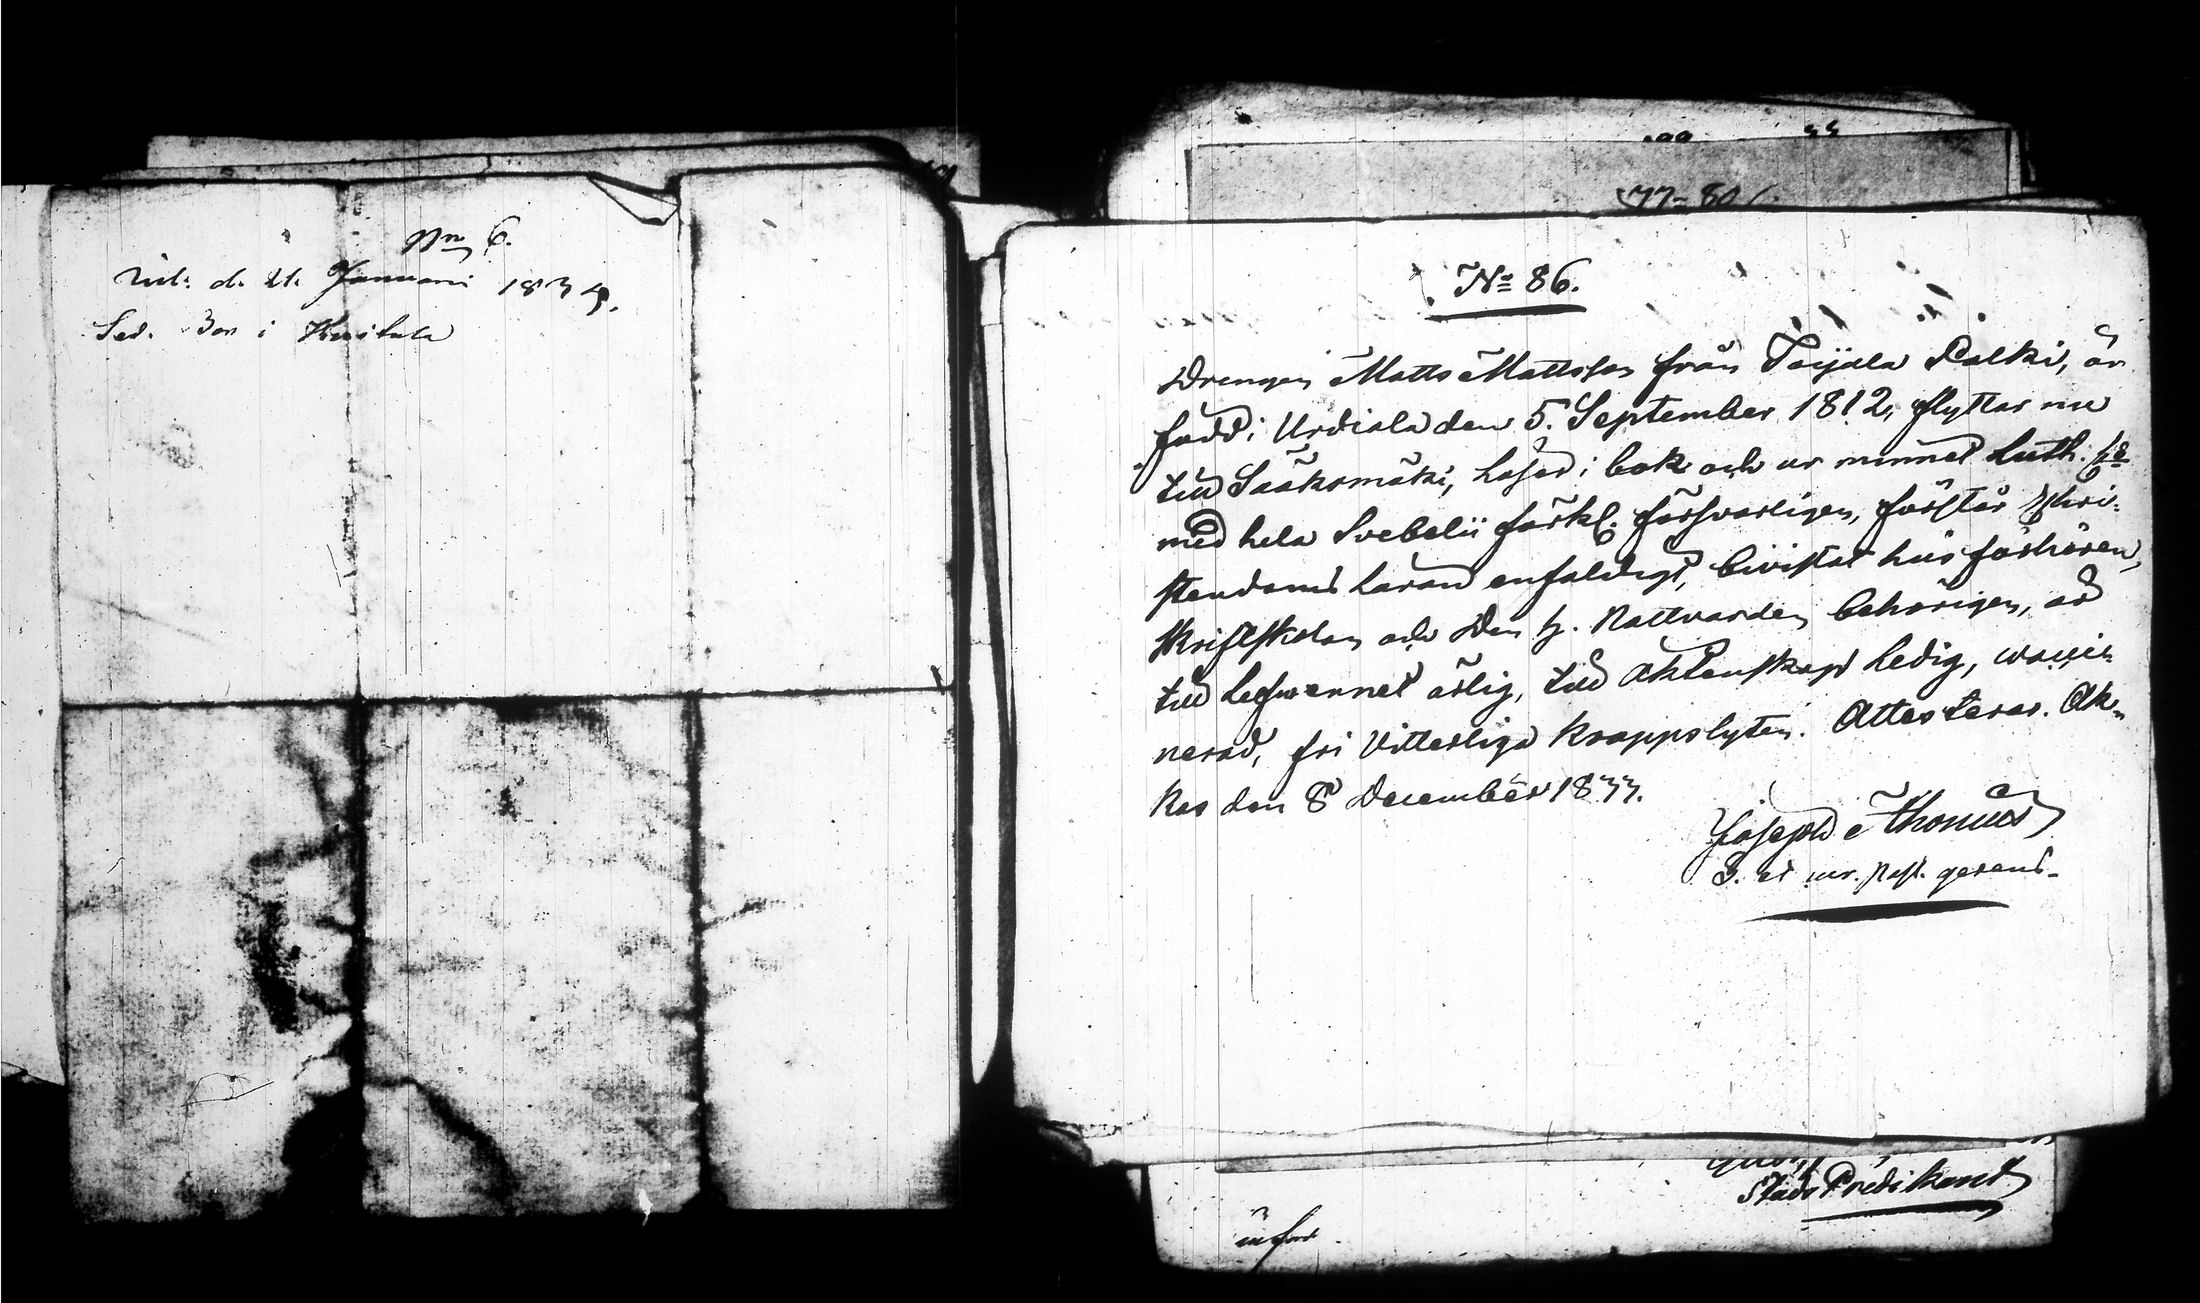 Nro 6.
Inl: d. 21. Januarii 1834.
Sed. 302 i Huittula
77-80
No 86.
Drengen Matts Mattsson från Toijala Palki, är
född i Urdiala den 5. September 1812, flyttar nu
till Sääksmäki, läser i bok och ur minnet Luth. Ce
med hela Svebelii förkl. försvarligen, förstår Chri-
stendoms läran enfaldigt, bivistat husförhören,
Skriftskolan och Den H. Nattvarden behörigen, är
till lefvernet ärlig, till äktenskap ledig, vacci-
nerad, fri vitterliga kroppslyten. Attesteras. Ak-
kas den 8 December 1833.
Joseph Thomæus
P. et vic. past. gerens.
Stads Predikant
införd.